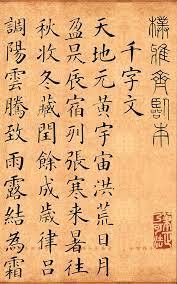 樸雅齋臨本
千字文
天地元黃宇宙洪荒日月
盈昃辰宿列張寒來暑往
秋收冬藏閏餘成歲律呂
調陽雲騰致雨露結為霜